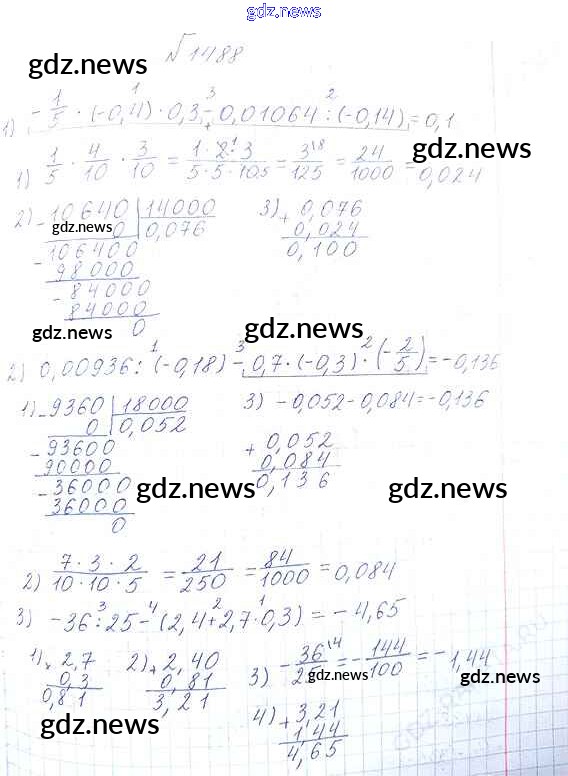 gdz.news
№1488
gdz.news
1) -1/5 · (-0,4) · 0,3 - 0,01064 : (-0,14) = 0,1
gdz.news
1) 1/5 · 4/10 · 3/10 = 1·2·3/5·5·10 = 3/125 = 24/1000 = 0,024
2) 10640 | 14000
0 | 0,076
gdz.news
106400
98000
84000
84000
0
3) + 0,076
0,024
0,100
gdz.news
gdz.news
2) 0,00936 : (-0,18) - 0,7 · (-0,3) · (-2/5) = -0,136
1) - 9360 | 18000
0 | 0,052
93600
90000
36000
36000
0
3) -0,052 - 0,084 = -0,136
+ 0,052
0,084
0,136
gdz.news
gdz.news
2) 7·3·2/10·10·5 = 21/250 = 84/1000 = 0,084
3) -36 : 25 - (2,4 + 2,7 · 0,3) = -4,65
1) × 2,7
0,3
0,81
2) + 2,40
0,81
3,21
3) -36/25 = -144/100 = -1,44
gdz.news
gdz.news
4) + 3,21
1,44
4,65
gdz.news